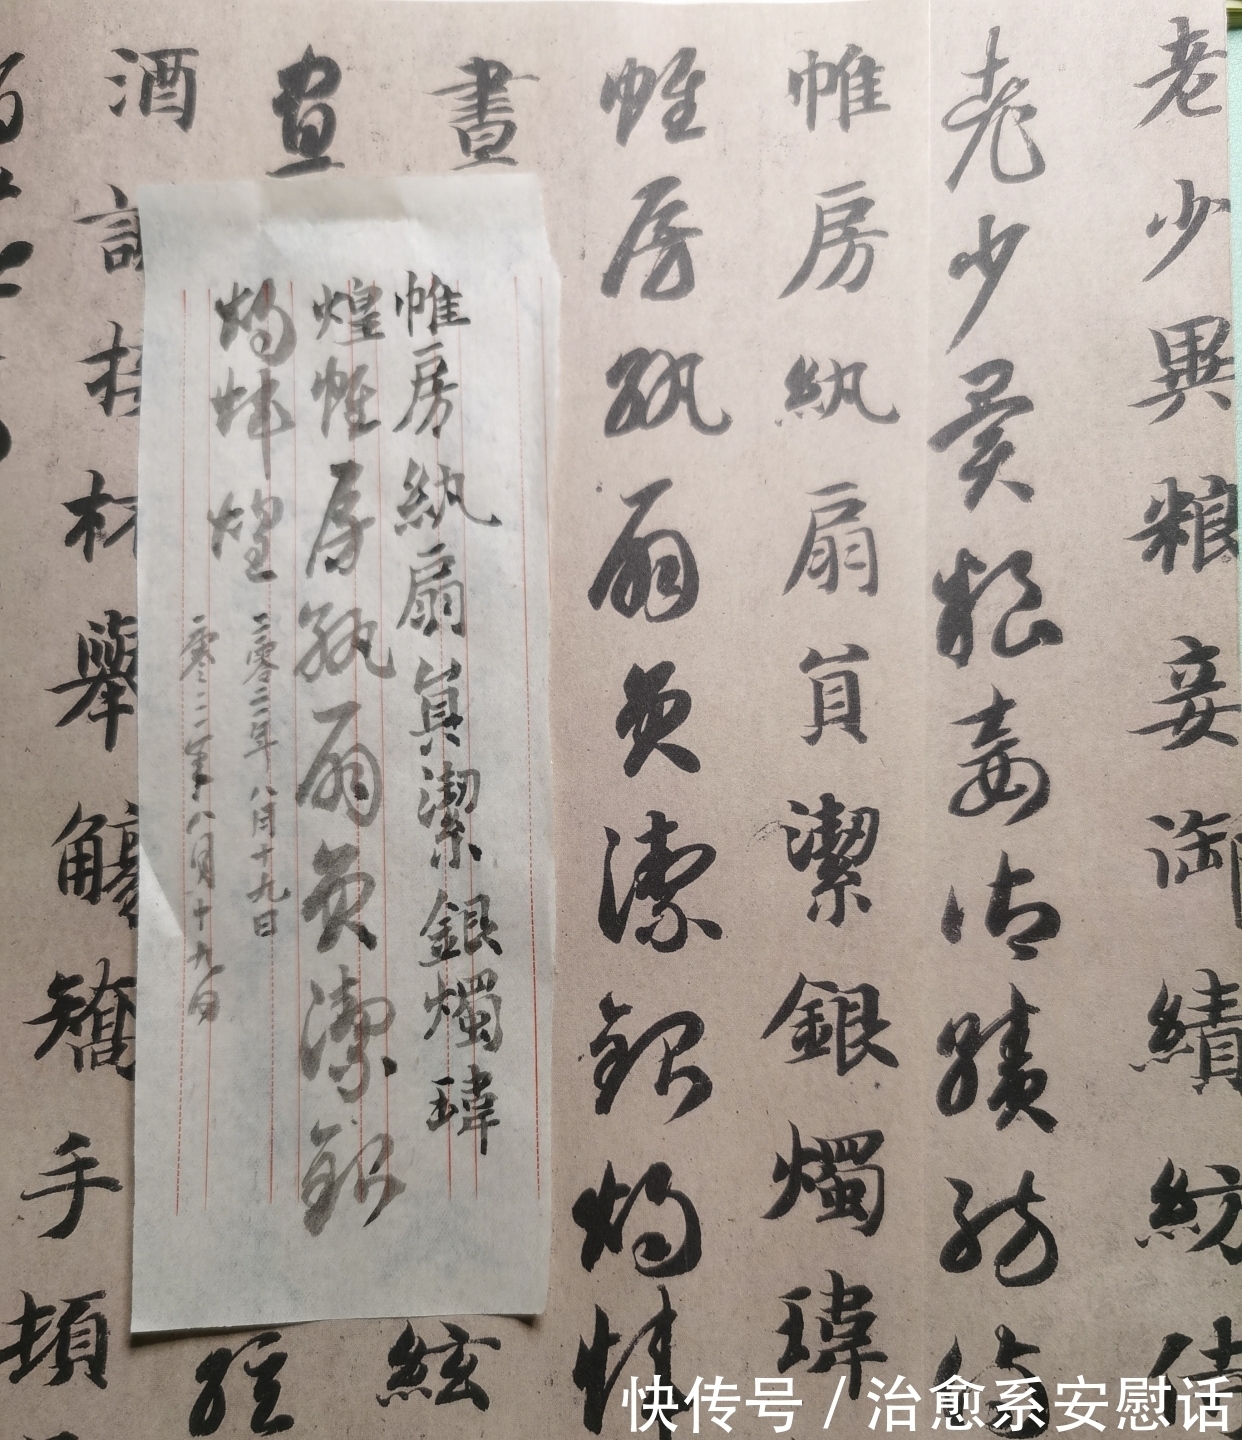 老少異粮妾御績紡侍
老少異粮妾御績紡侍
帷房紈扇員潔銀燭瑋
帷房紈扇員潔銀燭煒
晝
絃
晝
絃
酒
接杯舉觴矯手頓
帷房紈扇員潔銀燭瑋
煌帷房紈扇員潔銀
燭煒煌
二零二二年八月十九日
二零二二年八月十九日
快传号/治愈系安慰话